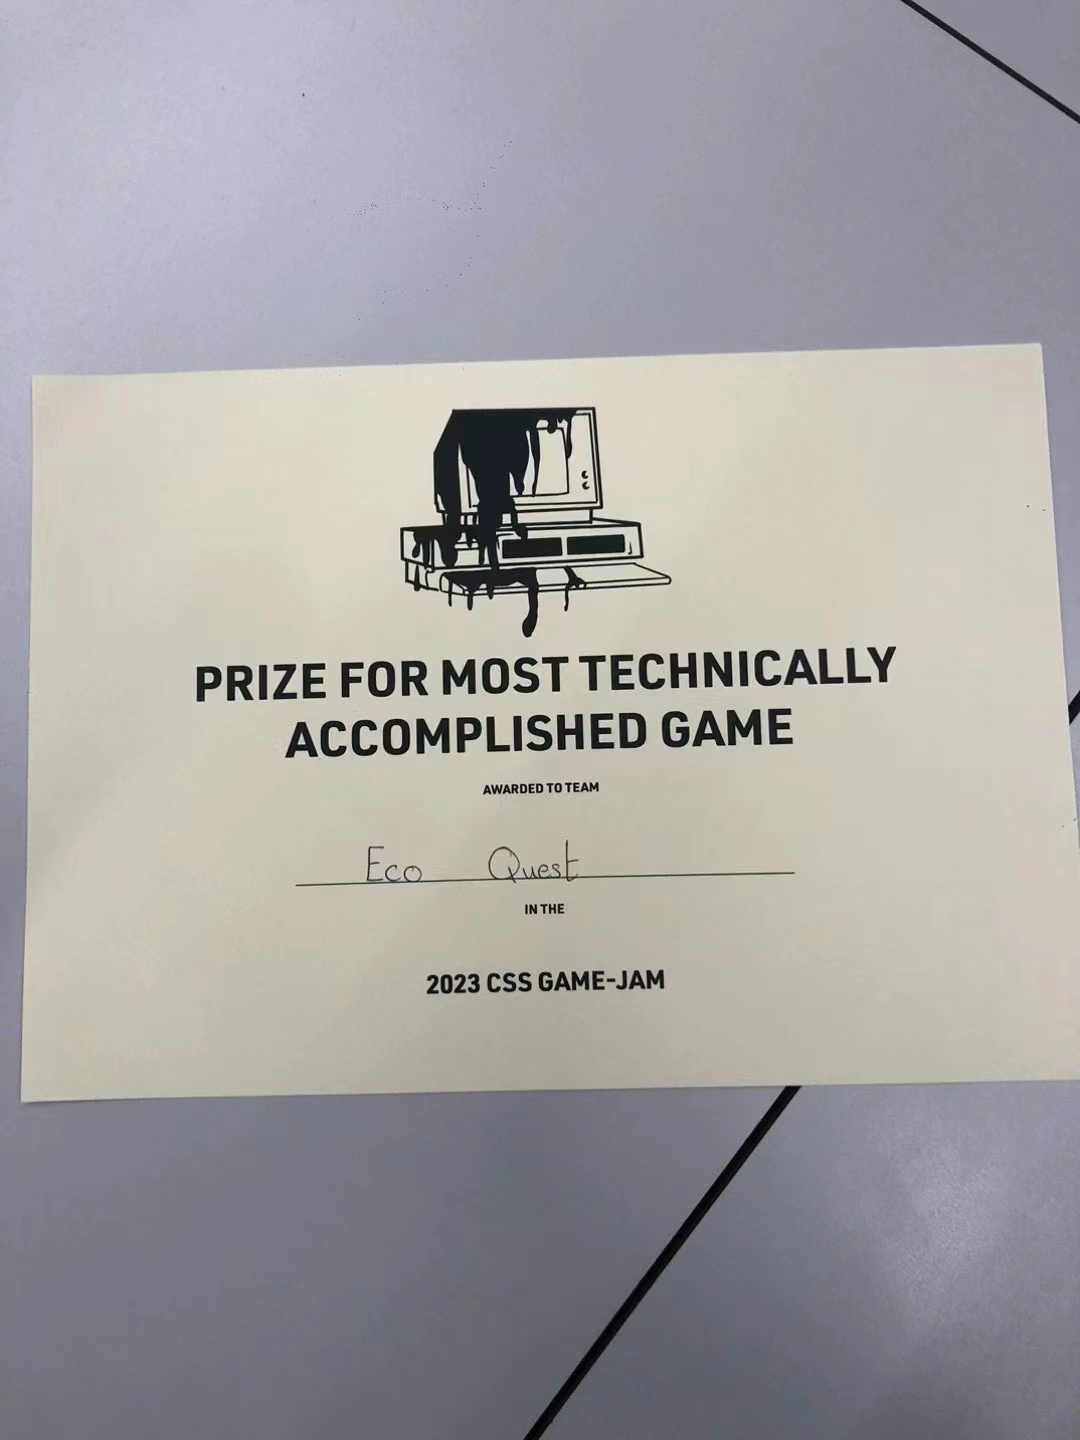 PRIZE FOR MOST TECHNICALLY
ACCOMPLISHED GAME
AWARDED TO TEAM
Eco Quest
IN THE
2023 CSS GAME-JAM